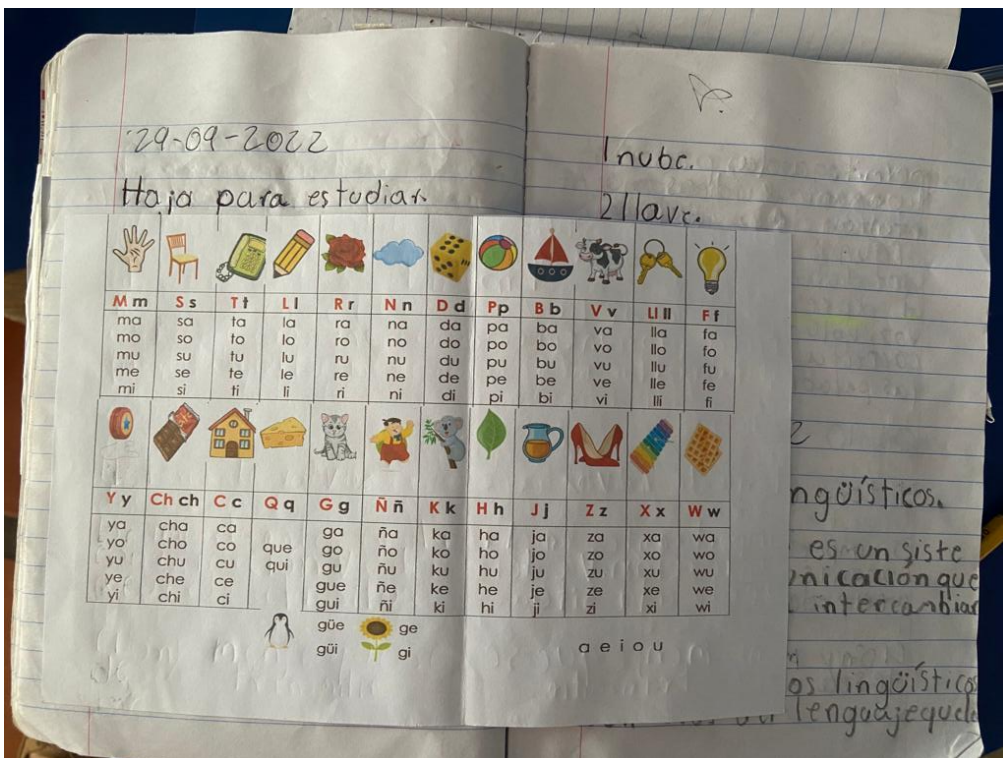 29-09-2022
Hoja para estudiar.
M m S s T t L l R r N n D d P p B b V v Ll ll F f
ma sa ta la ra na da pa ba va lla fa
mo so to lo ro no do po bo vo llo fo
mu su tu lu ru nu du pu bu vu llu fu
me se te le re ne de pe be ve lle fe
mi si ti li ri ni di pi bi vi lli fi
Y y Ch ch C c Q q G g Ñ ñ K k H h J j Z z X x W w
ya cha ca ga ña ka ha ja za xa wa
yo cho co que go ño ko ho jo zo xo wo
yu chu cu qui gu ñu ku hu ju zu xu wu
ye che ce gue ñe ke he je ze xe we
yi chi ci gui ñi ki hi ji zi xi wi
güe ge
güi gi
a e i o u
1 nube.
2 llave.
2
ngüísticos.
es un siste
nicacion que
intercambiar
os lingüísticos
lenguaje